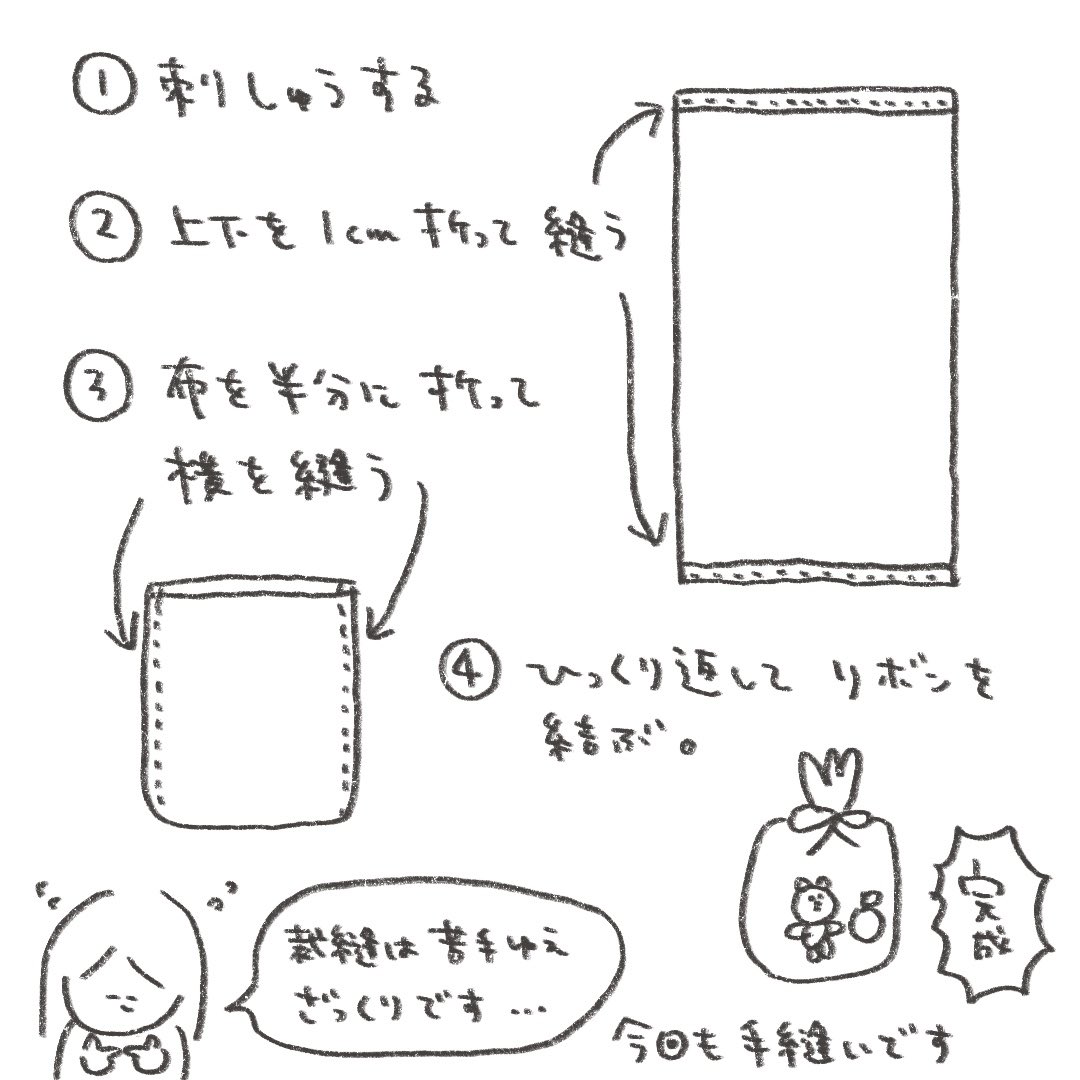 ① 刺しゅうする
② 上下を1cm 折って 縫う
③ 布を半分に折って
横を縫う
④ ひっくり返して リボンを
結ぶ。
完成
裁縫は苦手ゆえ
ざっくりです…
今回も手縫いです